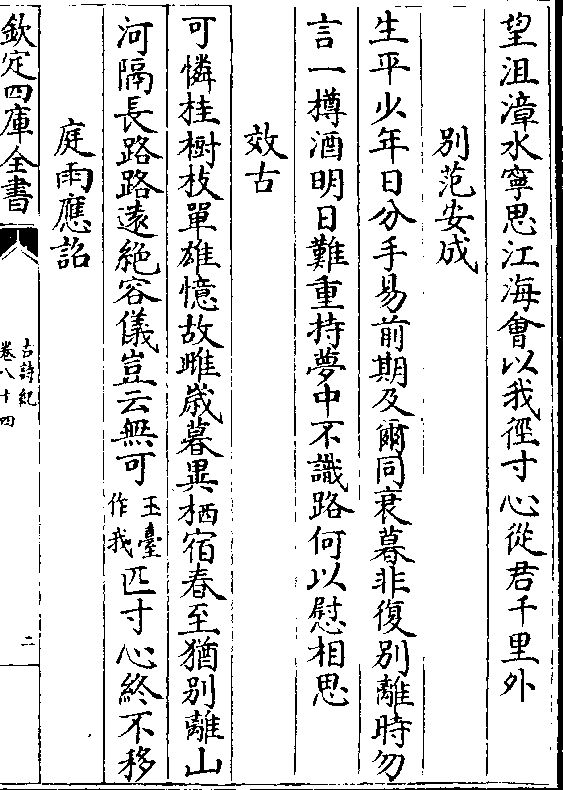 望沮漳水寧思江海會以我徑寸心從君千里外
別范安成
生平少年日分手易前期及爾同衰暮非復別離時勿
言一樽酒明日難重持夢中不識路何以慰相思
效古
可憐桂樹枝單雄憶故雌歲暮異栖宿春至猶別離山
河隔長路路遠絕容儀豈云無可玉臺作我匹寸心終不移
庭雨應詔
欽定四庫全書
古詩紀
卷八十四
二